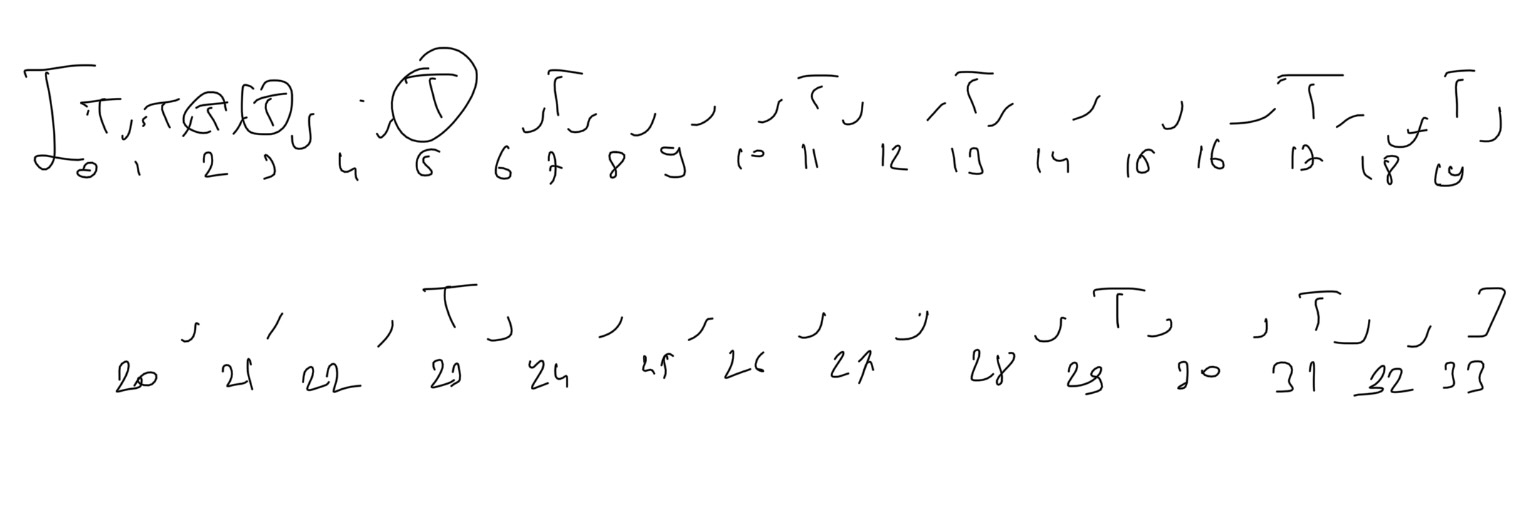 [T, T, T, T, , T , T, , , , T, , T, , , , T, , T,
0 1 2 3 4 5 6 7 8 9 10 11 12 13 14 15 16 17 18 19
, , , T, , , , , , T, , T, , ]
20 21 22 23 24 25 26 27 28 29 30 31 32 33